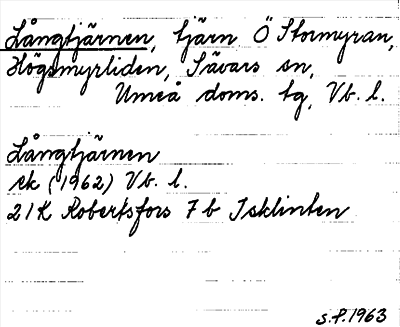 Långtjärnen, tjärn Ö Stormyran,
Högsmyrliden, Sävars sn,
Umeå doms. tg, Vb. l.
Långtjärnen
ek (1962) Vb. l.
21K Robertsfors 7b Isklinten
S.P. 1963